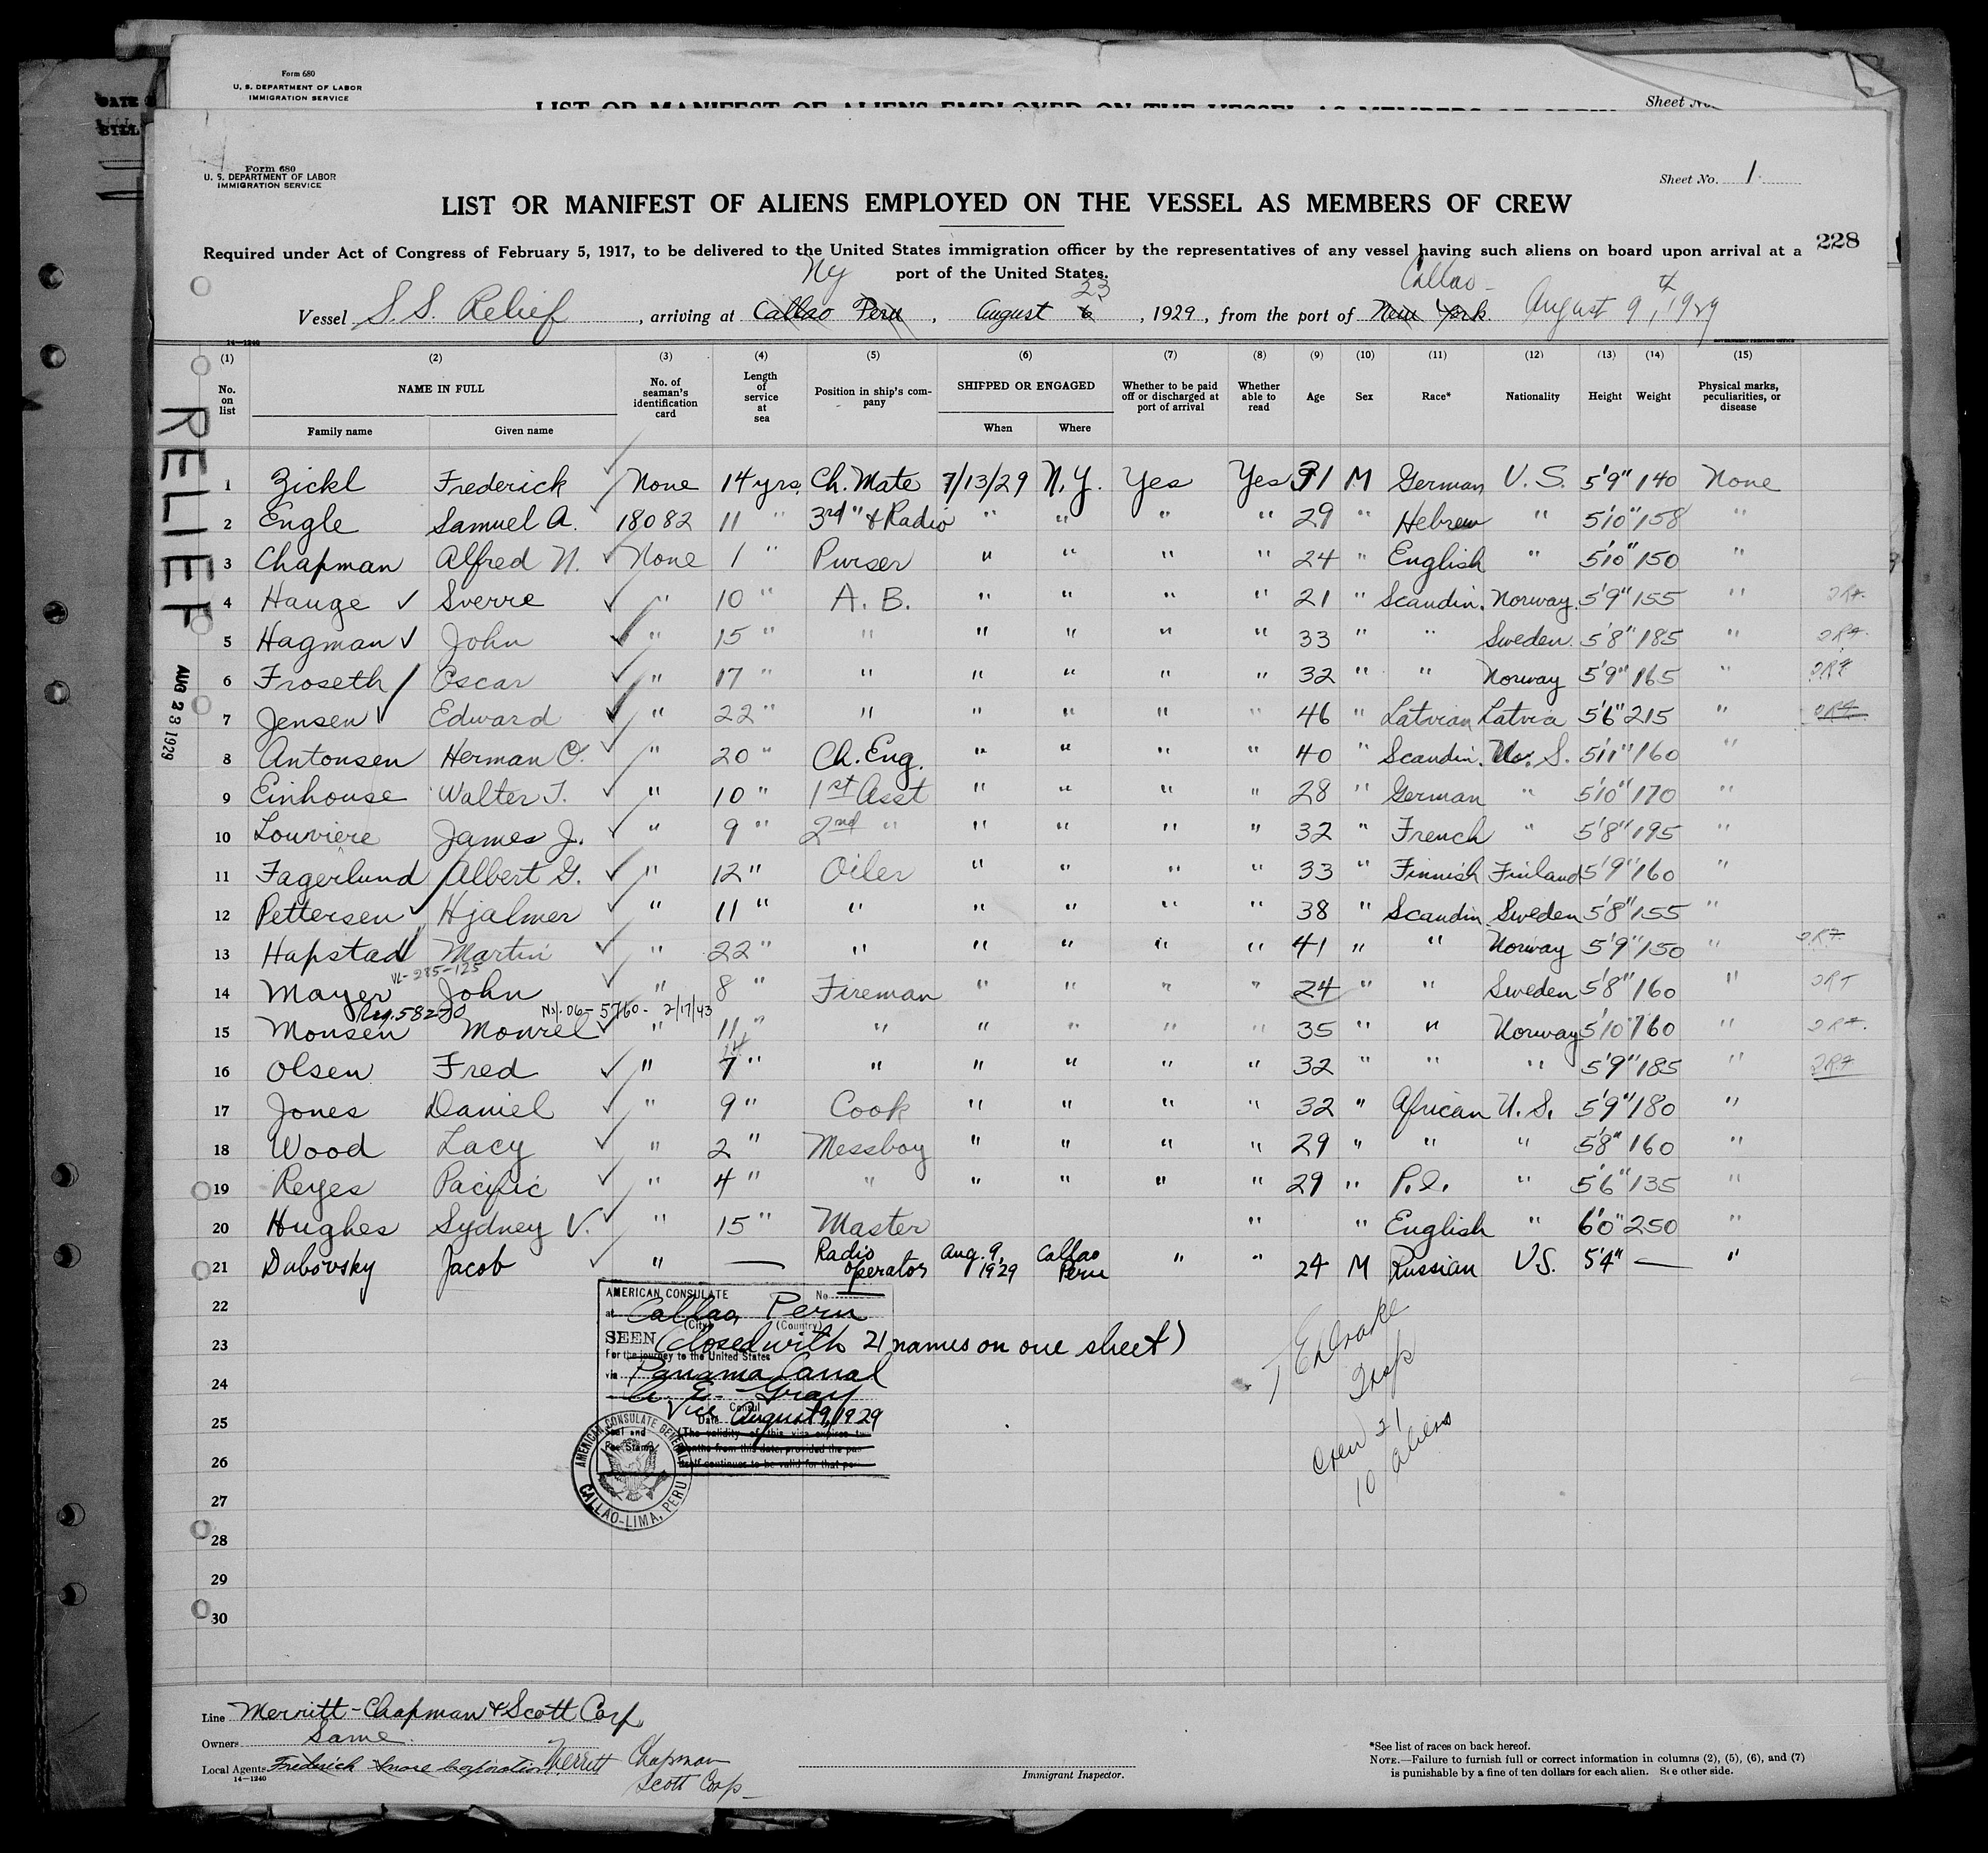 Form 680
U. S. DEPARTMENT OF LABOR
IMMIGRATION SERVICE
LIST OR MANIFEST OF ALIENS EMPLOYED ON THE VESSEL AS MEMBERS OF CREW
Sheet No.
Form 680
U. S. DEPARTMENT OF LABOR
IMMIGRATION SERVICE
Sheet No. 1
LIST OR MANIFEST OF ALIENS EMPLOYED ON THE VESSEL AS MEMBERS OF CREW
228
Required under Act of Congress of February 5, 1917, to be delivered to the United States immigration officer by the representatives of any vessel having such aliens on board upon arrival at a
port of the United States.
NY 23 Callao
Vessel S.S. Relief, arriving at Callao Peru, August 6, 1929, from the port of New York. August 9th, 1929
14—1240
(1) (2) (3) (4) (5) (6) (7) (8) (9) (10) (11) (12) (13) (14) (15)
No. on list NAME IN FULL Family name Given name No. of seaman's identification card Length of service at sea Position in ship's company SHIPPED OR ENGAGED When Where Whether to be paid off or discharged at port of arrival Whether able to read Age Sex Race* Nationality Height Weight Physical marks, peculiarities, or disease
RELIEF
AUG 23 1929
1 Zickl Frederick None 14 yrs. Ch. Mate 7/13/29 N.Y. Yes Yes 31 M German U.S. 5'9" 140 None
2 Engle Samuel A. 18082 11 " 3rd " & Radio " " " " 29 " Hebrew " 5'10" 158 "
3 Chapman Alfred N. None 1 " Purser " " " " 24 " English " 5'10" 150 "
4 Hauge Sverre " 10 " A. B. " " " " 21 " Scandin. Norway. 5'9" 155 "
5 Hagman John " 15 " " " " " " 33 " " Sweden. 5'8" 185 "
6 Froseth Oscar " 17 " " " " " " 32 " " Norway 5'9" 165 "
7 Jensen Edward " 22 " " " " " " 46 " Latvian Latvia 5'6" 215 "
8 Antonsen Herman O. " 20 " Ch. Eng. " " " " 40 " Scandin. U. S. 5'11" 160 "
9 Einhouse Walter T. " 10 " 1st Asst " " " " 28 " German " 5'10" 170 "
10 Louviere James J. " 9 " 2nd " " " " " 32 " French " 5'8" 195 "
11 Fagerlund Albert G. " 12 " Oiler " " " " 33 " Finnish Finland 5'9" 160 "
12 Pettersen Hjalmer " 11 " " " " " " 38 " Scandin Sweden 5'8" 155 "
13 Hapstad Martin " 22 " " " " " " 41 " " Norway 5'9" 150 "
VL-285-125
14 Mayer John " 8 " Fireman " " " " 24 " " Sweden 5'8" 160 "
Reg. 58270 06-5760- 2/17/43
15 Monsen Monrel " 11 " " " " " " 35 " " Norway 5'10" 160 "
14
16 Olsen Fred " 7 " " " " " " 32 " " " 5'9" 185 "
17 Jones Daniel " 9 " Cook " " " " 32 " African U.S. 5'9" 180 "
18 Wood Lacy " 2 " Messboy " " " " 29 " " " 5'8" 160 "
19 Reyes Pacific " 4 " " " " " " 29 " P.I. " 5'6" 135 "
20 Hughes Sydney V. " 15 " Master " " English " 6'0" 250 "
21 Dubovsky Jacob " — Radio operator Aug. 9, 1929 Callao Peru " " 24 M Russian U.S. 5'4" — "
22
23
24
25
26
27
28
29
30
AMERICAN CONSULATE No.
at Callao, Peru
(City) (Country)
SEEN (Closed with 21 names on one sheet)
For the journey to the United States
via Panama Canal
Gray
Vice Consul
Date August 9, 1929
Seal and Fee Stamp
(The validity of this visa expires
months from this date, provided the
itself continues to be valid for that
AMERICAN CONSULATE GENERAL
CALLAO-LIMA, PERU
Drake
Insp
Crew 21
10 aliens
Line Merritt-Chapman & Scott Corp.
Owners Same.
Local Agents Frederick Snare Corporation. Merritt Chapman
Scott Corp—
14—1240
Immigrant Inspector.
*See list of races on back hereof.
NOTE.—Failure to furnish full or correct information in columns (2), (5), (6), and (7)
is punishable by a fine of ten dollars for each alien. See other side.